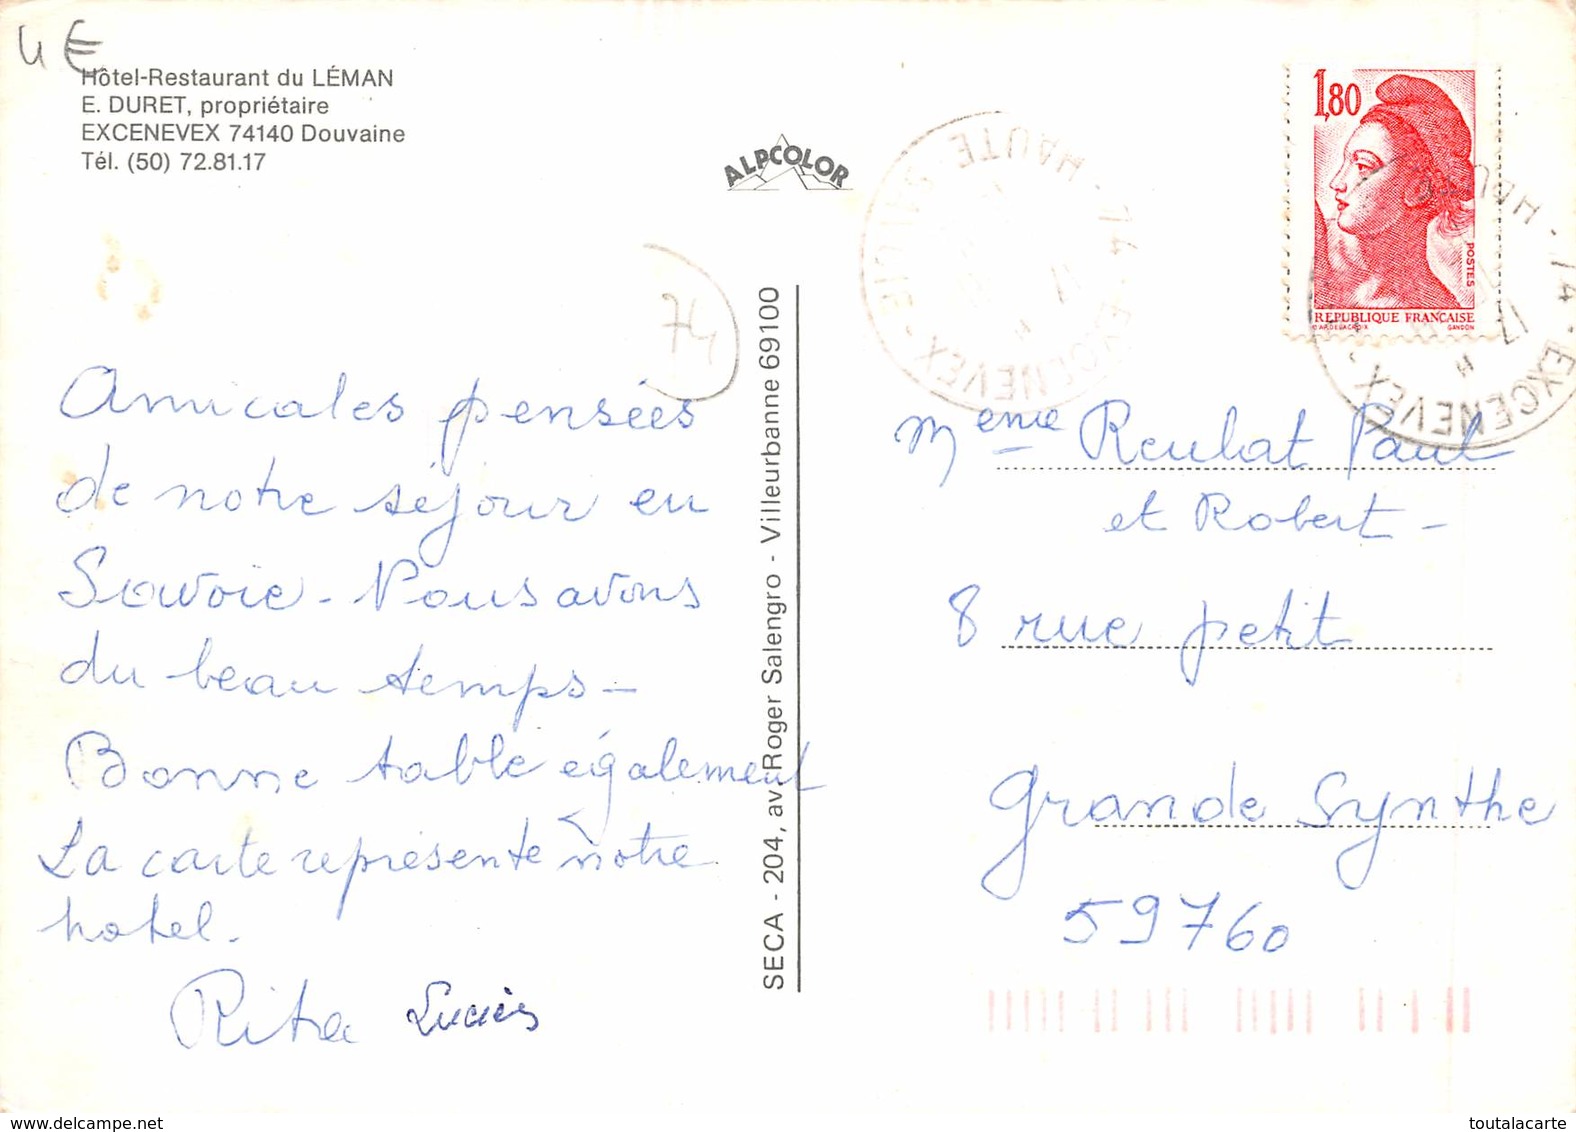 4€
Hôtel-Restaurant du LÉMAN
E. DURET, propriétaire
EXCENEVEX 74140 Douvaine
Tél. (50) 72.81.17
ALPCOLOR
74
1,80
POSTES
REPUBLIQUE FRANCAISE
GANDON
74 - EXCENEVEX - HAUTE SAVOIE
17
74 - EXCENEVEX -
17
Amicales pensées
de notre séjour en
Savoie - Nous avons
du beau temps -
Bonne table également
La carte représente notre
hotel.
Rita
SECA - 204, av. Roger Salengro - Villeurbanne 69100
Meme Reubat Paul
et Robert -
8 rue petit
Grande Synthe
59760
delcampe.net
toutalacarte